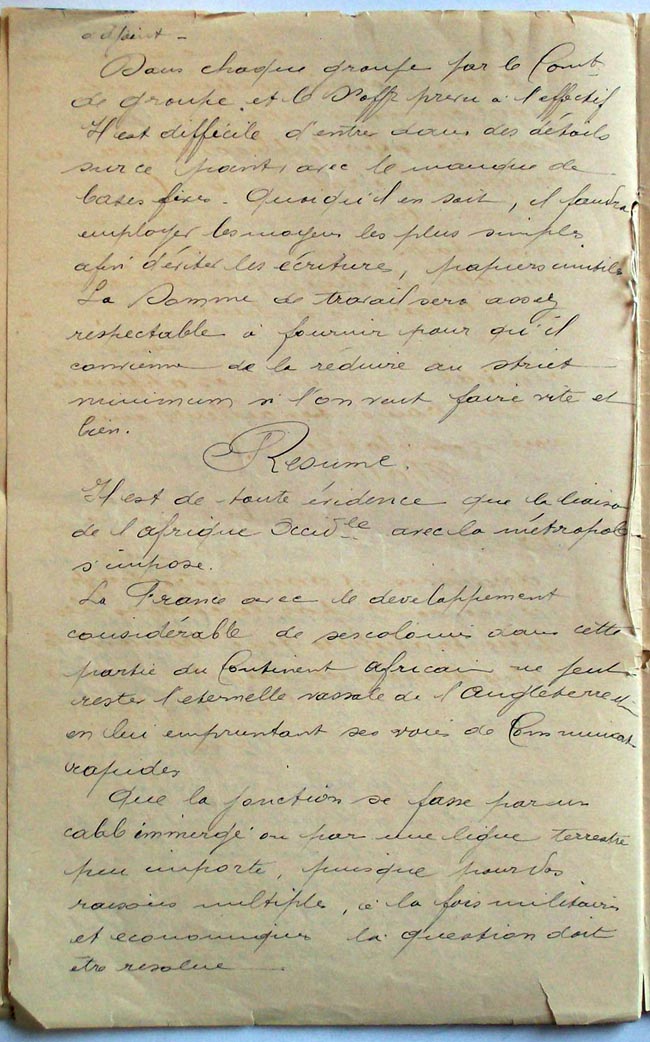 adjoint -
Dans chaque groupe par le Com<sup>t</sup>
de groupe et le S/off prevu à l'effectif
Il est difficile d'entrer dans des détails
sur ce point avec le manque de
bases fixes - Quoiqu'il en soit, il faudra
employer les moyens les plus simples
afin d'éviter les écritures, papiers inutiles
La Somme de travail sera assez
respectable à fournir pour qu'il
convienne de la réduire au strict
minimum si l'on veut faire vite et
bien.
Résumé.
Il est de toute évidence que la liaison
de l'afrique Occid<sup>le</sup> avec la métropole
s'impose.
La France avec le developpement
considérable de ses colonies dans cette
partie du Continent africain ne peut
rester l'eternelle vassale de l'Angleterre
en lui empruntant ses voies de Communicat
rapides
Que la jonction se fasse par un
cable immergé ou par une ligne terrestre
peu importe, puisque pour des
raisons multiples, à la fois militaires
et economiques la question doit
être resolue -